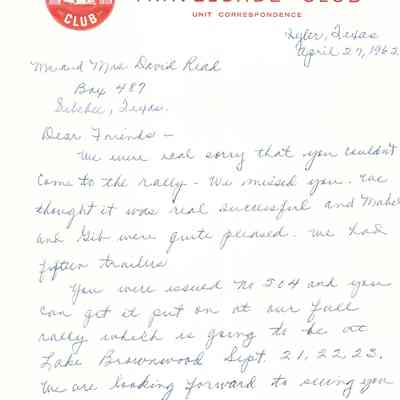 CLUB
TRAVELCADE CLUB
UNIT CORRESPONDENCE
Tyler, Texas
April 27, 1962
Mr. and Mrs. David Read
Box 487
Silsbee, Texas.
Dear Friends -
We were real sorry that you couldn't
come to the rally - We missed you. We
thought it was real successful and Mabel
and Gib were quite pleased. We had
fifteen trailers
You were issued No 504 and you
can get it put on at our fall
rally which is going to be at
Lake Brownwood Sept. 21, 22, 23.
We are looking forward to seeing you